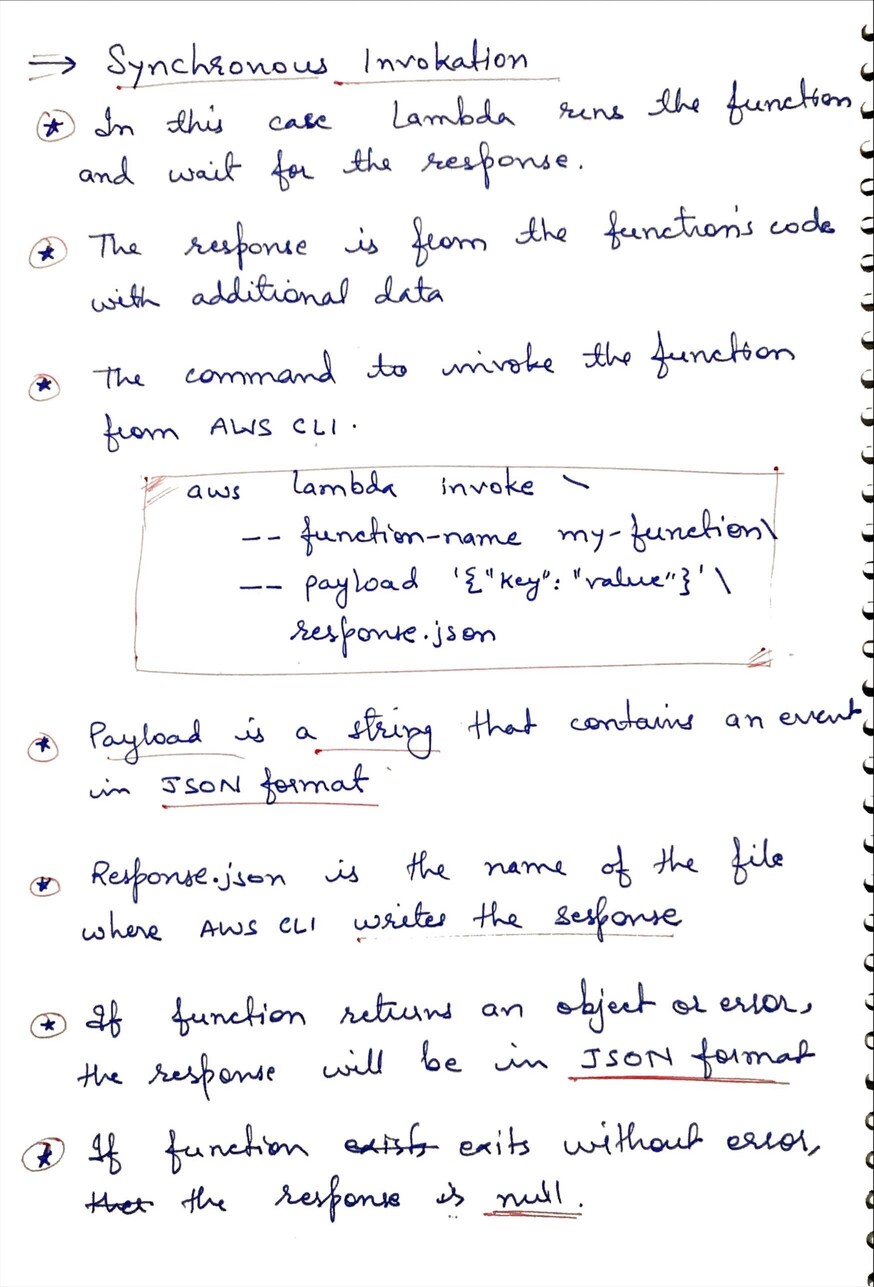 ⇒ Synchronous Invokation
In this case Lambda runs the function
and wait for the response.
The response is from the function's code
with additional data
The command to invoke the function
from AWS CLI.
aws lambda invoke \
-- function-name my-function\
-- payload '{"key": "value"}' \
response.json
Payload is a string that contains an event
in JSON format
Response.json is the name of the file
where AWS CLI writes the response
If function returns an object or error,
the response will be in JSON format
If function exists exits without error,
that the response is null.